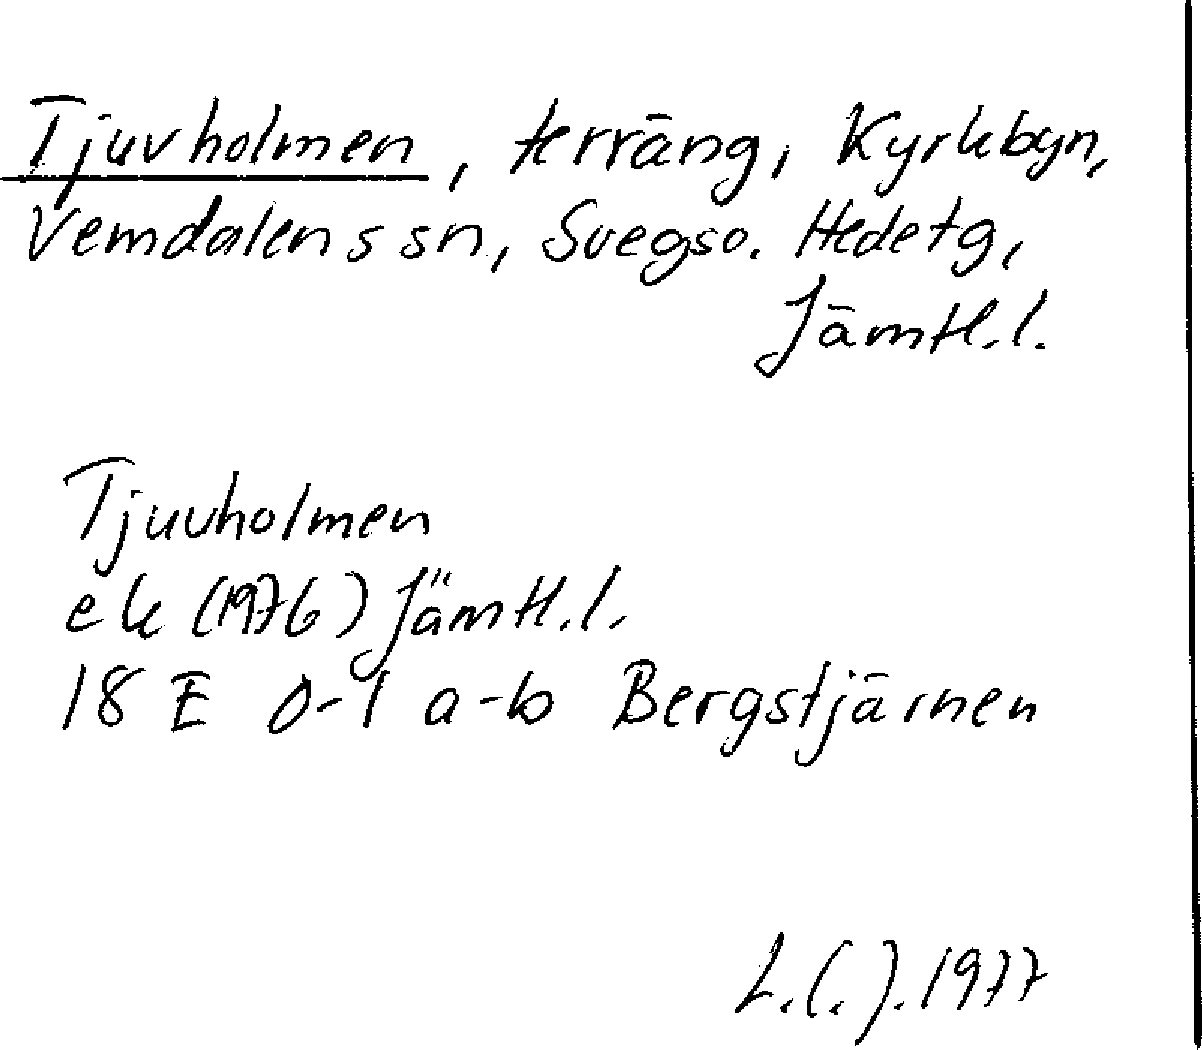 Tjuvholmen, terräng, Kyrkbyn,
Vemdalens sn, Svegso. Hedetg,
Jämtl.l.
Tjuvholmen
ek (1976) Jämtl.l.
18 E 0-1 a-b Bergstjärnen
L.(.).1977